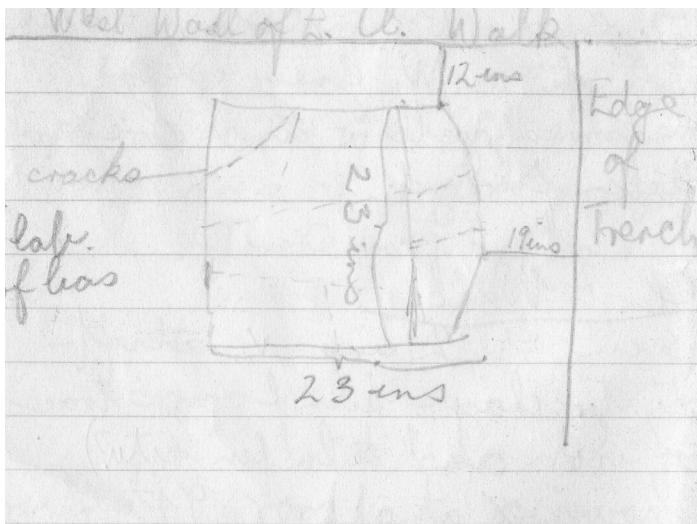 West Wall of E. Cl. Walk
12 ins
Edge
of
Trench
cracks
23 ins
19 ins
of lias
23 ins